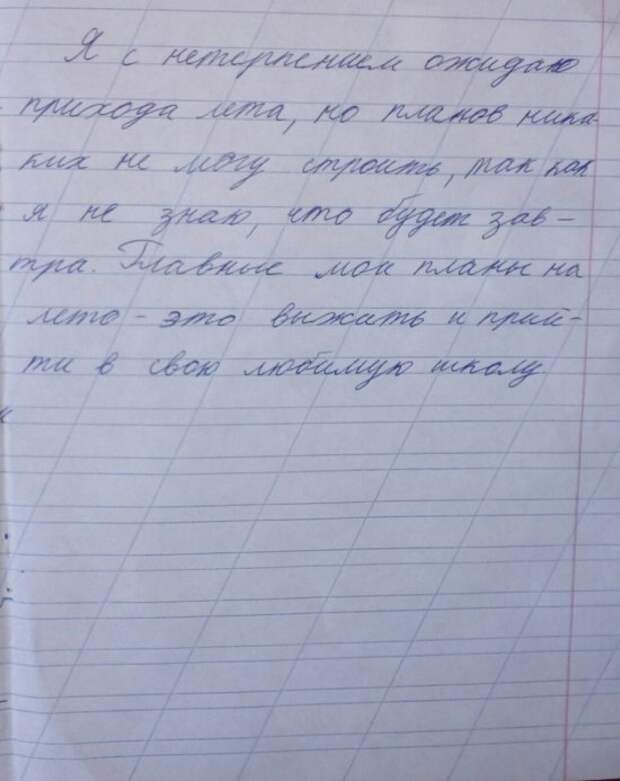 Я с нетерпением ожидаю
прихода лета, но планов ника-
ких не могу строить, так как
я не знаю, что будет зав-
тра. Главные мои планы на
лето - это выжить и прий-
ти в свою любимую школу